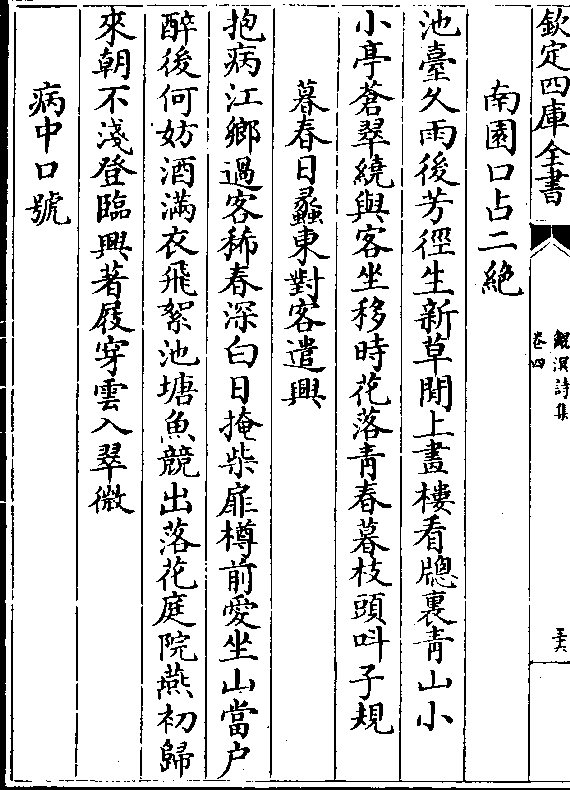 欽定四庫全書
鯤溟詩集
卷四
南園口占二絶
池臺久雨後芳徑生新草閒上畫樓看牕裏青山小
小亭蒼翠繞與客坐移時花落青春暮枝頭呌子規
暮春日蠡東對客遣興
抱病江鄉過客稀春深白日掩柴扉樽前愛坐山當户
醉後何妨酒滿衣飛絮池塘魚競出落花庭院燕初歸
來朝不淺登臨興著屐穿雲入翠微
病中口號